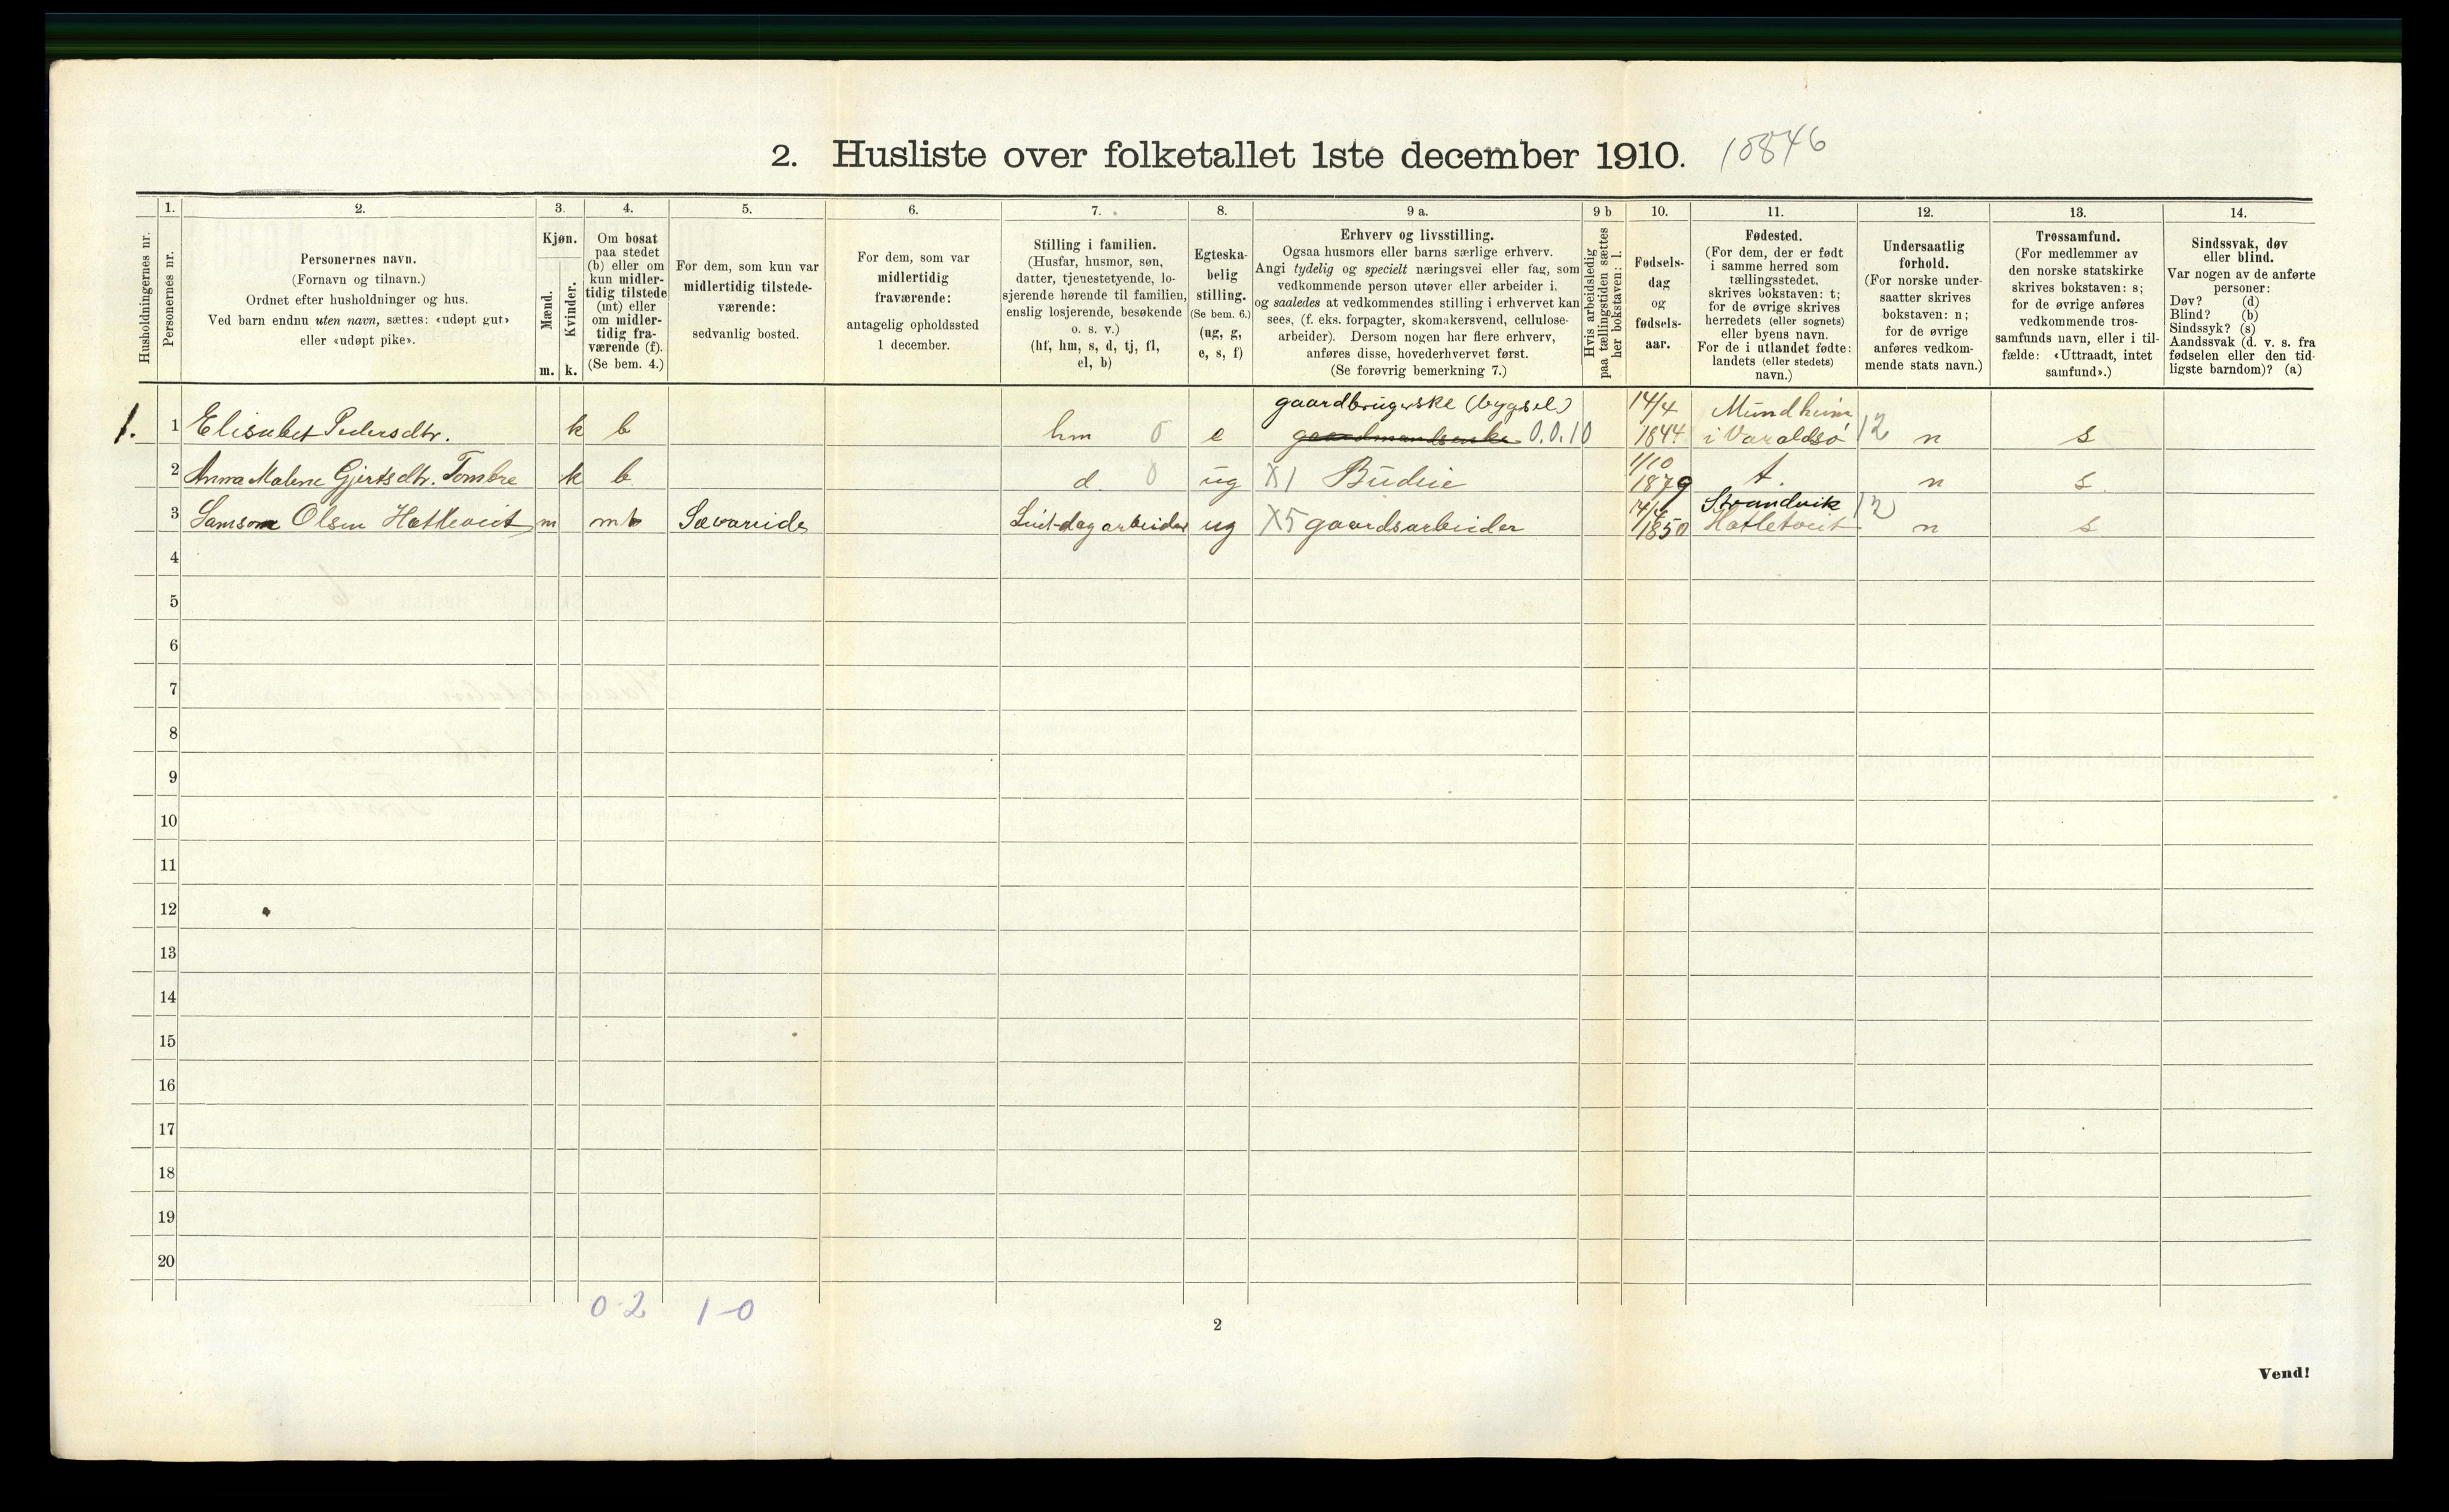 2. Husliste over folketallet 1ste december 1910. 10846
Husholdningernes nr.
1.
Personernes nr.
2.
Personernes navn.
(Fornavn og tilnavn.)
Ordnet efter husholdninger og hus.
Ved barn endnu uten navn, sættes: «udøpt gut»
eller «udøpt pike».
3.
Kjøn.
Mænd.
Kvinder.
m. k.
4.
Om bosat
paa stedet
(b) eller om
kun midler-
tidig tilstede
(mt) eller
om midler-
tidig fra-
værende (f).
(Se bem. 4.)
5.
For dem, som kun var
midlertidig tilstede-
værende:
sedvanlig bosted.
6.
For dem, som var
midlertidig
fraværende:
antagelig opholdssted
1 december.
7.
Stilling i familien.
(Husfar, husmor, søn,
datter, tjenestetyende, lo-
sjerende hørende til familien,
enslig losjerende, besøkende
o. s. v.)
(hf, hm, s, d, tj, fl,
el, b)
8.
Egteska-
belig
stilling.
(Se bem. 6.)
(ug, g,
e, s, f)
9 a.
Erhverv og livsstilling.
Ogsaa husmors eller barns særlige erhverv.
Angi tydelig og specielt næringsvei eller fag, som
vedkommende person utøver eller arbeider i,
og saaledes at vedkommendes stilling i erhvervet kan
sees, (f. eks. forpagter, skomakersvend, cellulose-
arbeider). Dersom nogen har flere erhverv,
anføres disse, hovederhvervet først.
(Se forøvrig bemerkning 7.)
9 b
Hvis arbeidsledig
paa tællingstiden sættes
her bokstaven: l.
10.
Fødsels-
dag
og
fødsels-
aar.
11.
Fødested.
(For dem, der er født
i samme herred som
tællingsstedet,
skrives bokstaven: t;
for de øvrige skrives
herredets (eller sognets)
eller byens navn.
For de i utlandet fødte:
landets (eller stedets)
navn.)
12.
Undersaatlig
forhold.
(For norske under-
saatter skrives
bokstaven: n;
for de øvrige
anføres vedkom-
mende stats navn.)
13.
Trossamfund.
(For medlemmer av
den norske statskirke
skrives bokstaven: s;
for de øvrige anføres
vedkommende tros-
samfunds navn, eller i til-
fælde: «Uttraadt, intet
samfund».)
14.
Sindssvak, døv
eller blind.
Var nogen av de anførte
personer:
Døv? (d)
Blind? (b)
Sindssyk? (s)
Aandssvak (d. v. s. fra
fødselen eller den tid-
ligste barndom)? (a)
gaardbrugerske (bygsel) 14/4 Mundheim
1. 1 Elisabet Pedersdtr. k b hm 0 e gaardmandsenke 0.0.10 1844 i Varaldsö 12 n s
1/10
2 Anna Malene Gjertsdtr. Tombre k b d. 0 ug X1 Budeie 1879 t. n s.
14/4 Strandvik 12
3 Samson Olsen Hatletveit m mt Sævareide Leiet-dagarbeider ug X5 gaardsarbeider 1850 Hatletveit n s
4
5
6
7
8
9
10
11
12
13
14
15
16
17
18
19
20
0-2 1-0
2
Vend!